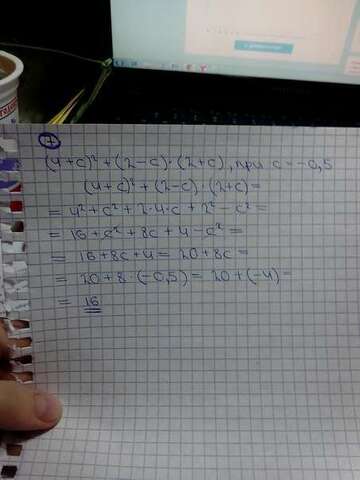 7
(4+c)² + (2-c)·(2+c), при c = -0,5
(4+c)² + (2-c)·(2+c) =
= 4² + c² + 2·4·c + 2² - c² =
= 16 + c² + 8c + 4 - c² =
= 16 + 8c + 4 = 20 + 8c =
= 20 + 8·(-0,5) = 20 + (-4) =
= 16